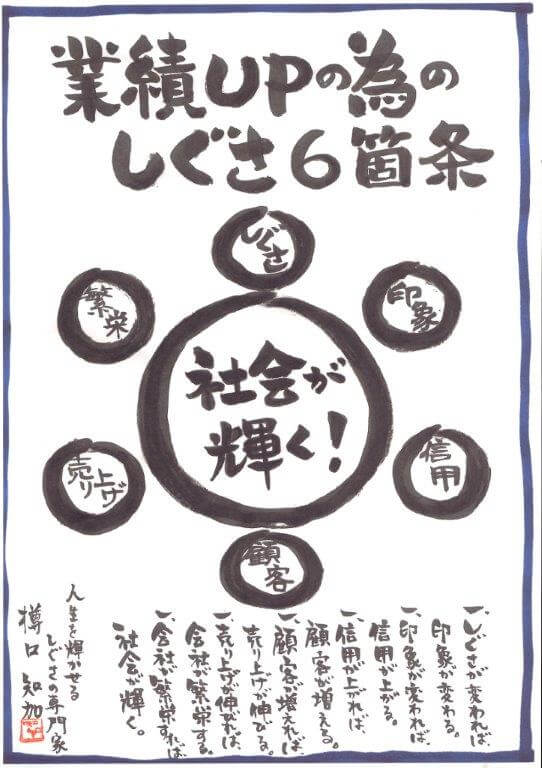 業績UPの為の
しぐさ6箇条
しぐさ
印象
信用
顧客
売り上げ
繁栄
社会が
輝く!
一、しぐさが変われば、
印象が変わる。
一、印象が変われば、
信用が上がる。
一、信用が上がれば、
顧客が増える。
一、顧客が増えれば、
売り上げが伸びる。
一、売り上げが伸びれば、
会社が繁栄する。
一、会社が繁栄すれば、
社会が輝く。
人生を輝かせる
しぐさの専門家
樽口 知加